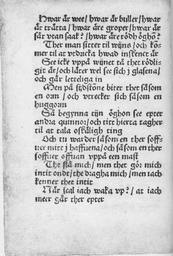 Hwar är wee / hwar är buller / hwar
är träätta / hwar äre groper / hwar är
sår vtan saak? / hwar är rödh öghö?
Ther man sitter til wijns / och kö-
mer til at vtdricka hwad inskenckt är.
See icke vppå wijnet tå thet rödli-
git är / och lärer wel see sich j glasena /
och går letteliga in
Men på sidstone biter thet såsom
en orm / och vtrecker sich såsom en
huggorm
Så begynna tijn öghon see epter
andra quinnor / och titt hierta tagher
til at tala oskälligh ting
Och tu warder såsom en ther soff-
uer mitt j haffuena / och såsom en ther
soffuer offuan vppå en mast
The slå mich / men thet gör mich
intit ondt / the dragha mich / men iach
kenner thet intit
När skal iach waka vp? / at iach
meer går ther epter